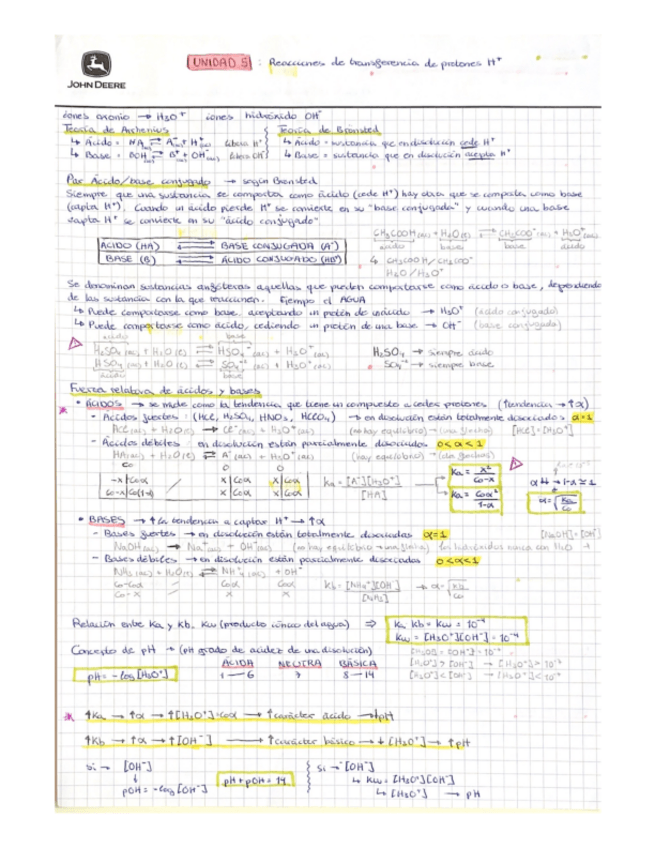 JOHN DEERE
UNIDAD 5 : Reacciones de transferencia de protones H⁺
iones oxonio → H₃O⁺ iones hidróxido OH⁻
Teoría de Arrhenius
↳ Ácido = HA ⇌ A⁻(ac) + H⁺(ac) libera H⁺
↳ Base = BOH(ac) ⇌ B⁺ + OH⁻(ac) libera OH⁻
Teoría de Bronsted
↳ Ácido = sustancia que en disolución cede H⁺
↳ Base = sustancia que en disolución acepta H⁺
Par Ácido/base conjugada → según Bronsted
Siempre que una sustancia se comporta como ácido (cede H⁺) hay otra que se comporta como base
(capta H⁺). Cuando un ácido pierde H⁺ se convierte en su "base conjugada" y cuando una base
capta H⁺ se convierte en su "ácido conjugado"
CH₃COOH(ac) + H₂O(l) ⇌ CH₃COO⁻(ac) + H₃O⁺(ac)
ácido base base ácido
ÁCIDO (HA) ⇌ BASE CONJUGADA (A⁻)
BASE (B) ⇌ ÁCIDO CONJUGADO (HB⁺)
↳ CH₃COOH / CH₃COO⁻
H₂O / H₃O⁺
Se denominan sustancias anfóteras aquellas que pueden comportarse como ácido o base, dependiendo
de las sustancia con la que reaccionen. Ejemplo el AGUA
↳ Puede comportarse como base, aceptando un protón de un ácido → H₃O⁺ (ácido conjugado)
↳ Puede comportarse como ácido, cediendo un protón de una base → OH⁻ (base conjugada)
ácido base
H₂SO₄(ac) + H₂O(l) ⇌ HSO₄⁻(ac) + H₃O⁺(ac) H₂SO₄ → siempre ácido
HSO₄⁻(ac) + H₂O(l) ⇌ SO₄⁻²(ac) + H₃O⁺(ac) SO₄⁻² → siempre base
ácido base
Fuerza relativa de ácidos y bases
* • ÁCIDOS → se mide como la tendencia que tiene un compuesto a ceder protones (tendencia → ↑α)
- Ácidos fuertes : (HCl, H₂SO₄, HNO₃, HClO₄) → en disolución están totalmente disociados α=1
HCl(ac) + H₂O(l) → Cl⁻(ac) + H₃O⁺(ac) (no hay equilibrio) → (una flecha) [HCl]=[H₃O⁺]
- Ácidos débiles : en disolución están parcialmente disociados 0<α<1
HA(ac) + H₂O(l) ⇌ A⁻(ac) + H₃O⁺(ac) (hay equilibrio) → (dos flechas)
Co 0 0
-x | Coα x | Coα x | Coα
Co-x | Co(1-α) x | Coα x | Coα
Ka = [A⁻][H₃O⁺] / [HA]
Ka = x² / Co-x
Ka = Coα² / 1-α
α↓↓ → 1-α ≃ 1
α = √(Ka/Co)
• BASES → ↑ la tendencia a captar H⁺ → ↑α
- Bases fuertes → en disolución están totalmente disociadas α=1 [NaOH]=[OH⁻]
NaOH(ac) → Na⁺(ac) + OH⁻(ac) (no hay equilibrio → una flecha) los hidróxidos nunca con H₂O
- Bases débiles → en disolución están parcialmente disociadas 0<α<1
NH₃(ac) + H₂O(l) ⇌ NH₄⁺(ac) + OH⁻
Co-Coα Coα Coα
Co-x x x
Kb = [NH₄⁺][OH⁻] / [NH₃] → α = √(Kb/Co)
Relación entre Ka y Kb. Kw (producto iónico del agua) ⇒ Ka Kb = Kw = 10⁻¹⁴
Kw = [H₃O⁺][OH⁻] = 10⁻¹⁴
Concepto de pH → (pH grado de acidez de una disolución)
ÁCIDA NEUTRA BÁSICA
pH = -log [H₃O⁺] 1 — 6 7 8 — 14
[H₃O⁺] = [OH⁻] = 10⁻⁷
[H₃O⁺] > [OH⁻] → [H₃O⁺] > 10⁻⁷
[H₃O⁺] < [OH⁻] → [H₃O⁺] < 10⁻⁷
* ↑Ka → ↑α → ↑[H₃O⁺]·Coα → ↑carácter ácido → ↓pH
↑Kb → ↑α → ↑[OH⁻] → ↑carácter básico → ↓[H₃O⁺] → ↑pH
si → [OH⁻]
↓
pOH = -log [OH⁻]
pH + pOH = 14
si → [OH⁻]
↳ Kw = [H₃O⁺][OH⁻]
↳ [H₃O⁺] → pH